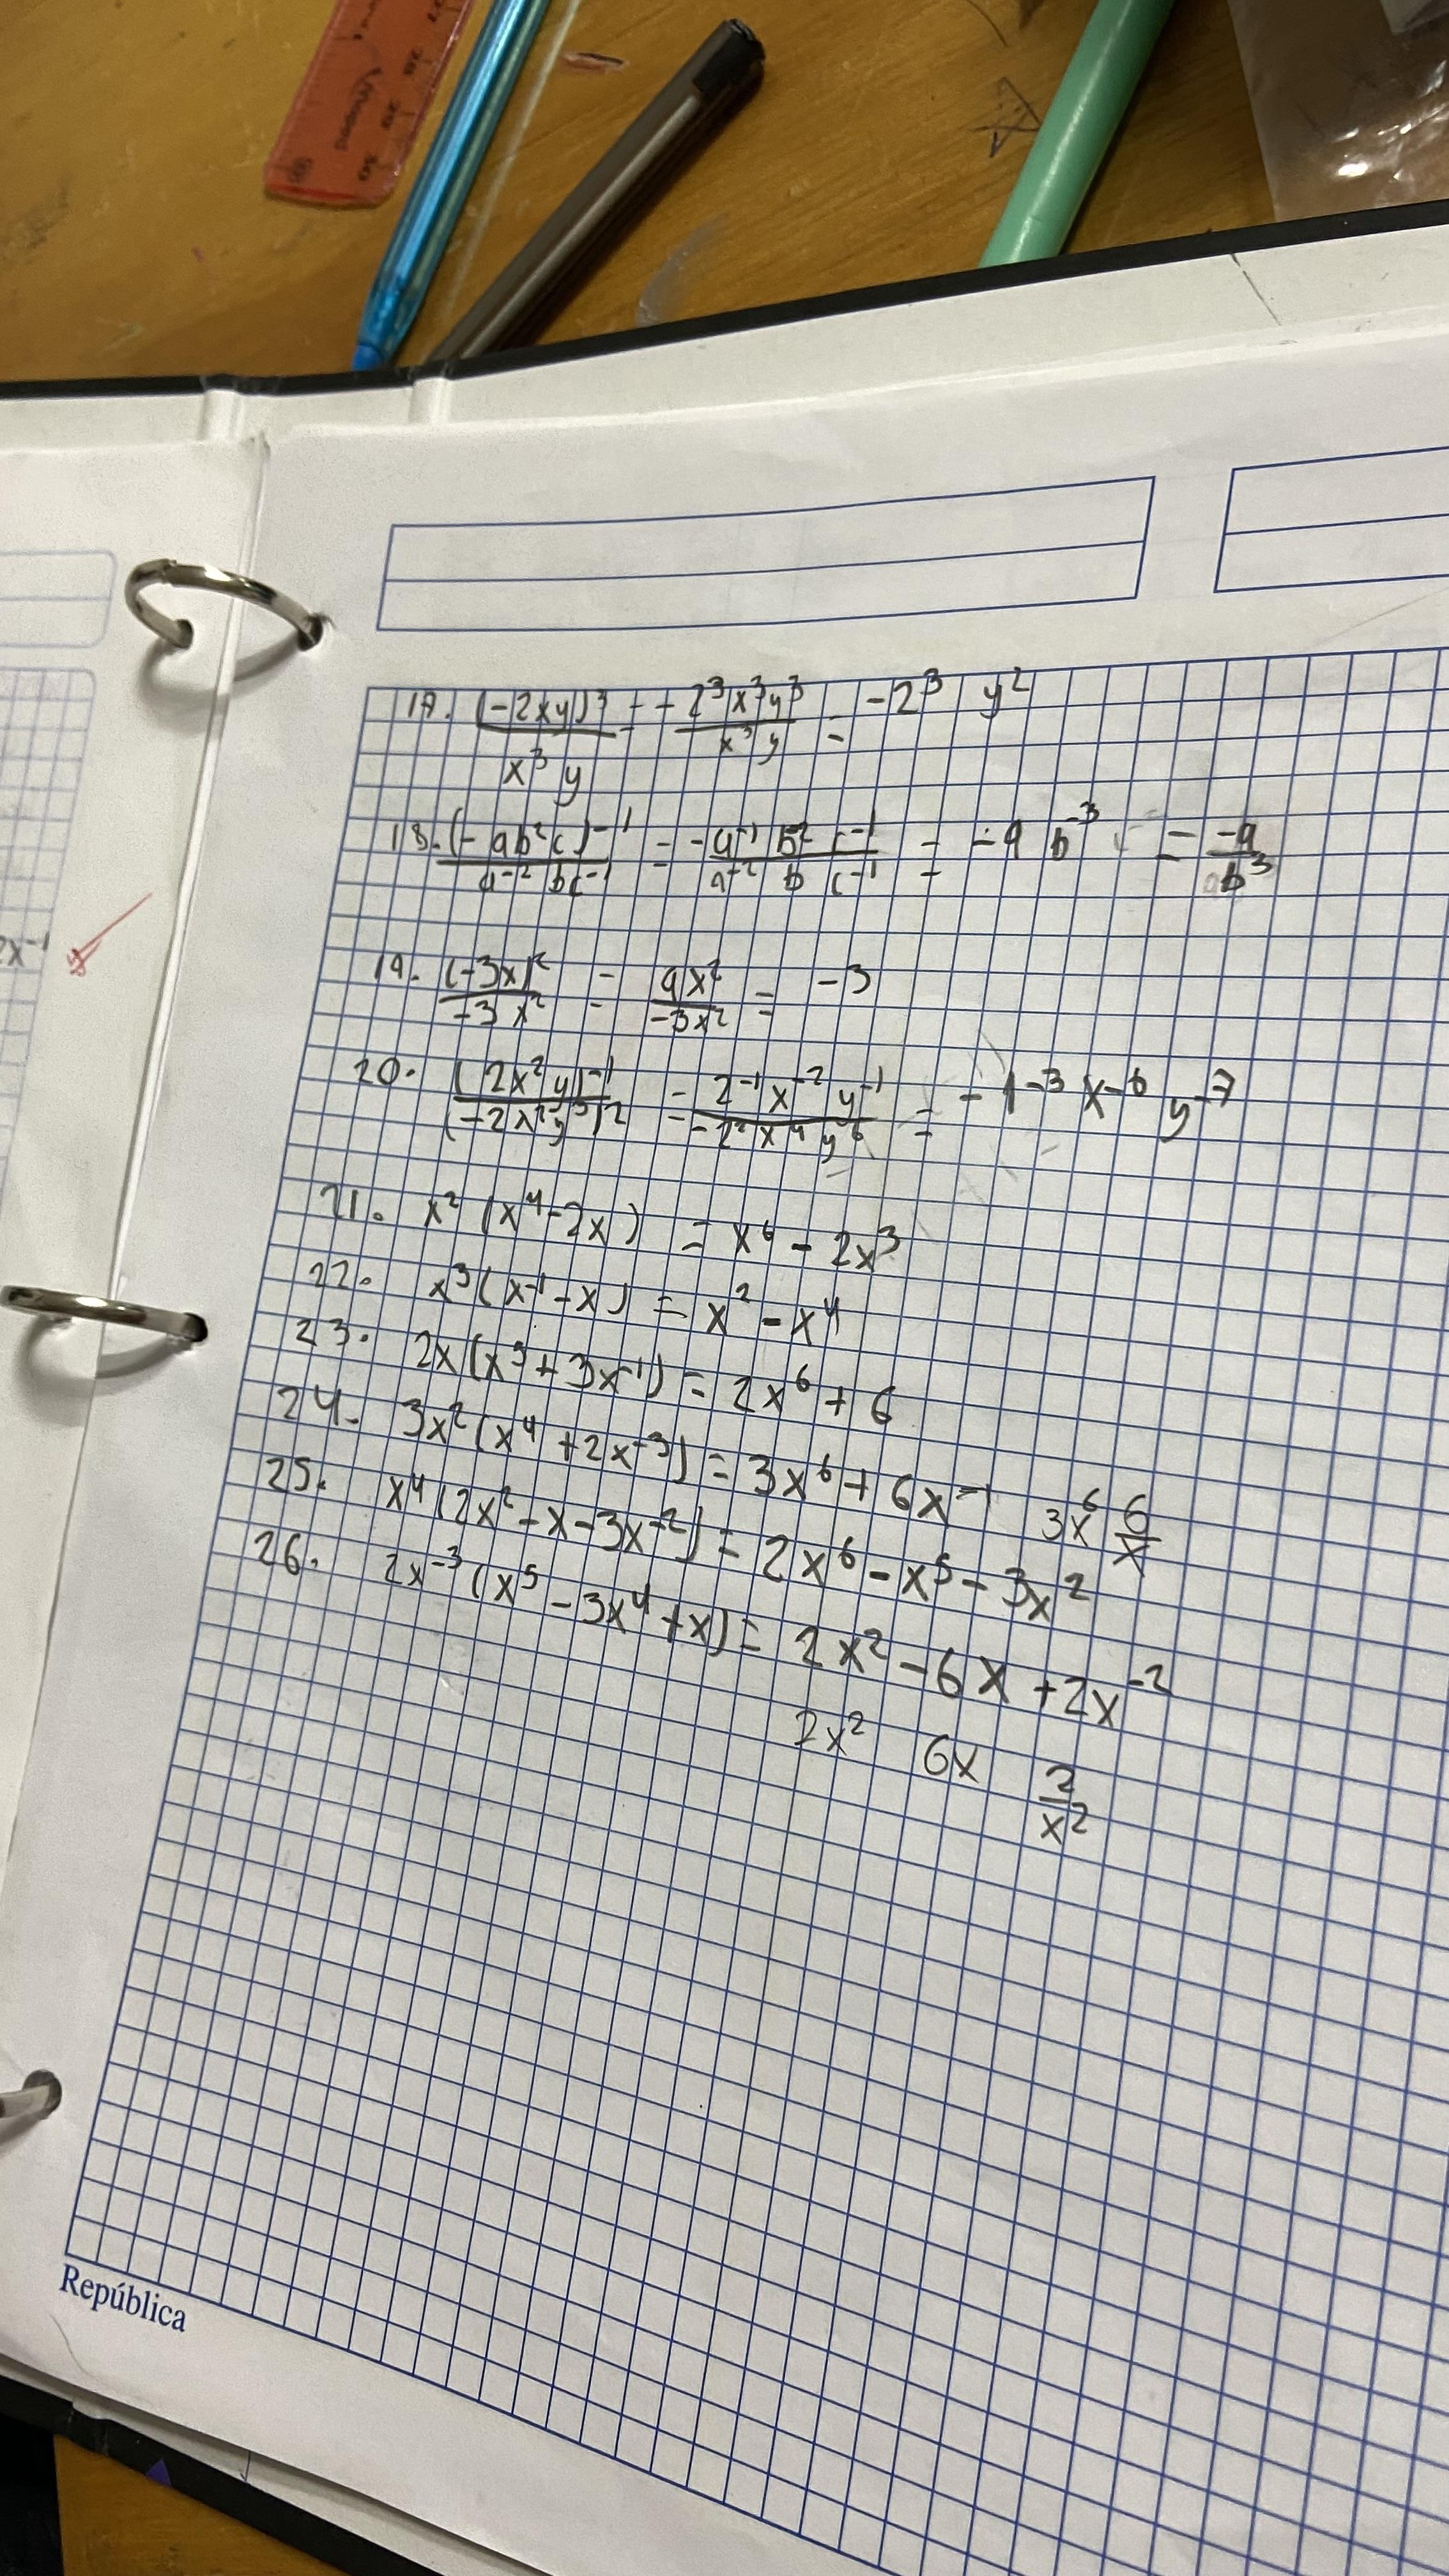 17. (-2xy)³/x³y = -2³x³y³/x³y = -2³ y²
18. (-ab²c)⁻¹/a⁻²bc⁻¹ = -a⁻¹b⁻²c⁻¹/a⁻² b c⁻¹ = -a b⁻³ = -a/b³
2x⁻¹
19. (-3x)²/-3x² = 9x²/-3x² = -3
20. (2x²y)⁻¹/(-2x²y³)² = 2⁻¹x⁻²y⁻¹/-2²x⁴y⁶ = -1⁻³ x⁻⁶ y⁻⁷
21. x² (x⁴-2x) = x⁶ - 2x³
22. x³(x⁻¹-x) = x² - x⁴
23. 2x(x⁵+3x⁻¹) = 2x⁶ + 6
24. 3x²(x⁴+2x⁻³) = 3x⁶ + 6x⁻¹ 3x⁶ 6/x
25. x⁴(2x²-x-3x⁻²) = 2x⁶ - x⁵ - 3x²
26. 2x⁻³(x⁵-3x⁴+x) = 2x² - 6x + 2x⁻²
2x² 6x 2/x²
República